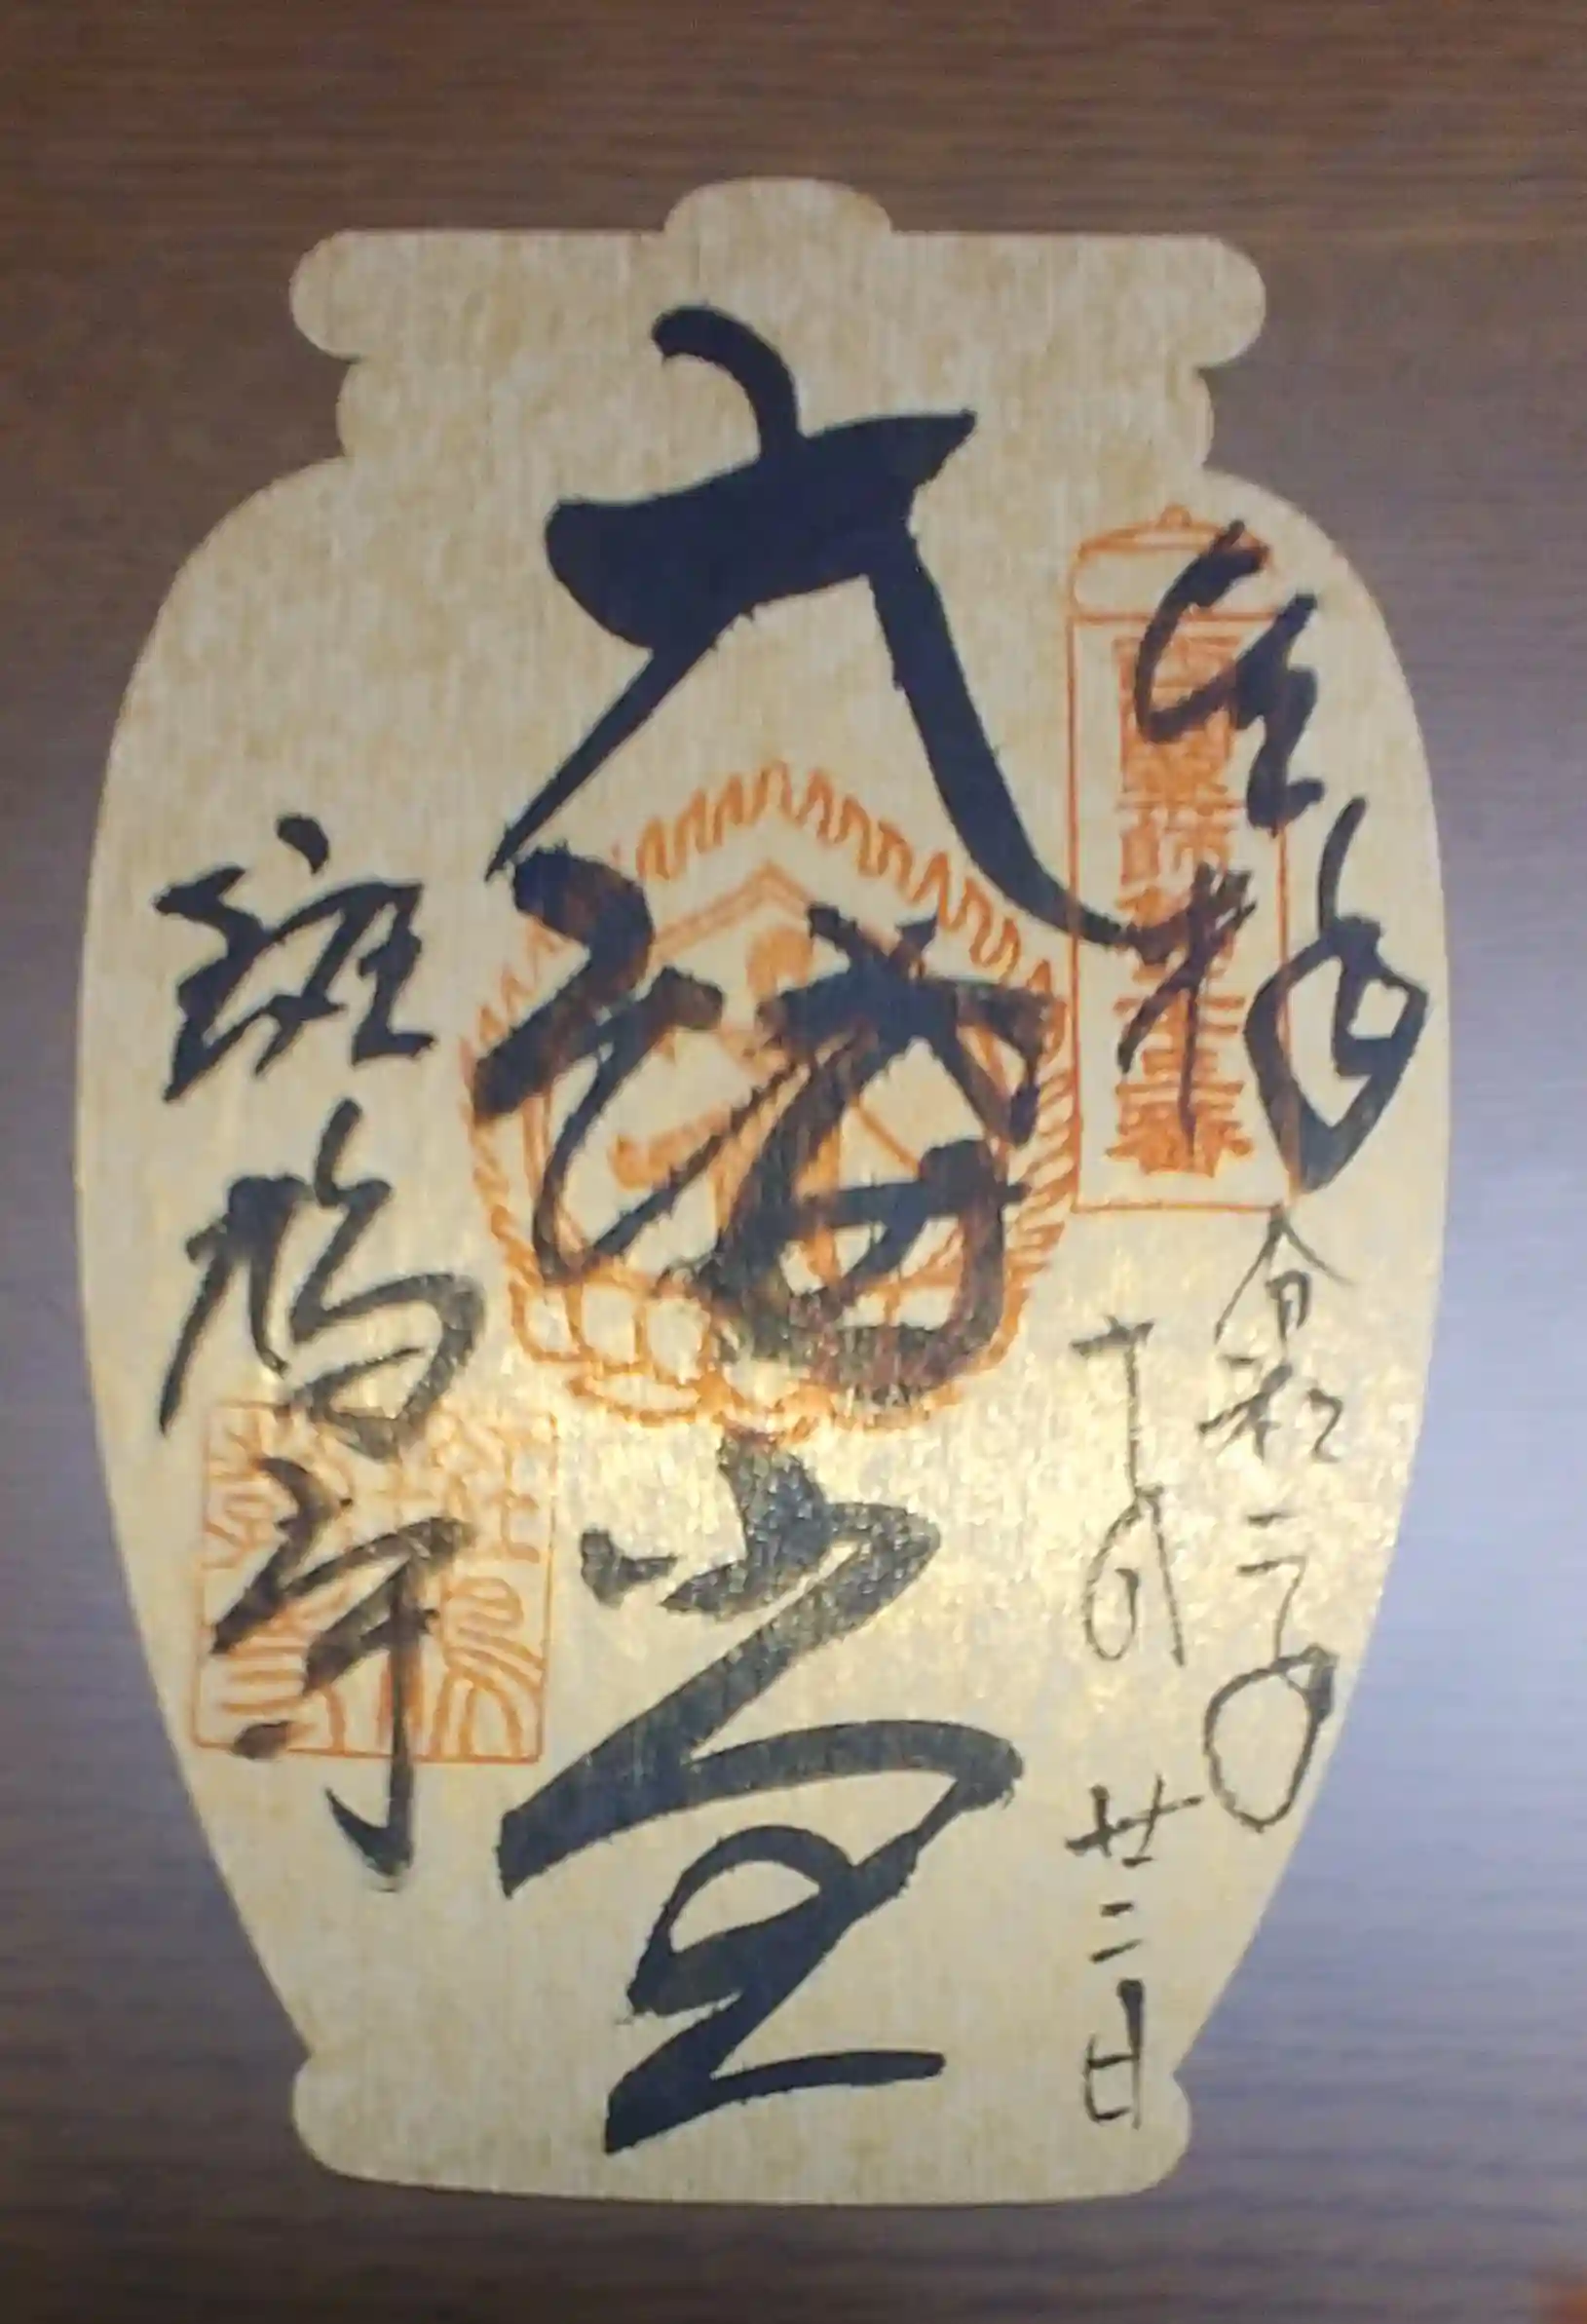 奉拝
令和二年
十月廿二日
大講堂
斑鳩寺